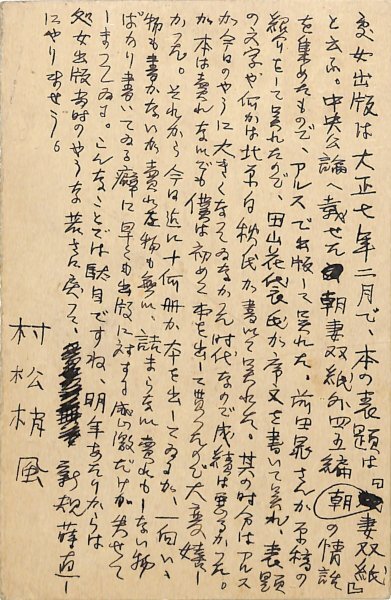 処女出版は大正七年二月で、本の表題は「妻双紙」
と云ふ。中央公論へ載せた朝妻双紙外四五編朝の情話
を集めたもので、アルスで出版して呉れた。前田晁さんが原稿の
紹介をして呉れたので、田山花袋氏が序文を書いて呉れ、表題
の文字や何かは北原白秋氏が書いて呉れた。其の時分はアルス
が今日のやうに大きくなつてゐなかつた時代なので成績は悪るかつた。
が本は売れないでも僕は初めて本を出して貰つたので大変嬉し
かつた。それから今日迄に十何冊か本を出してゐるが、一向いゝ
物も書かないが売れた物も無い 詰まらない売れもしない物
ばかり書いてゐる癖に早くも出版に対する感激だけが失せて
しまつてゐる。こんなことでは駄目ですね、明年あたりからは
処女出版当時のやうな若さに戻つて、新規蒔直し
にやりませう。
村松梢風